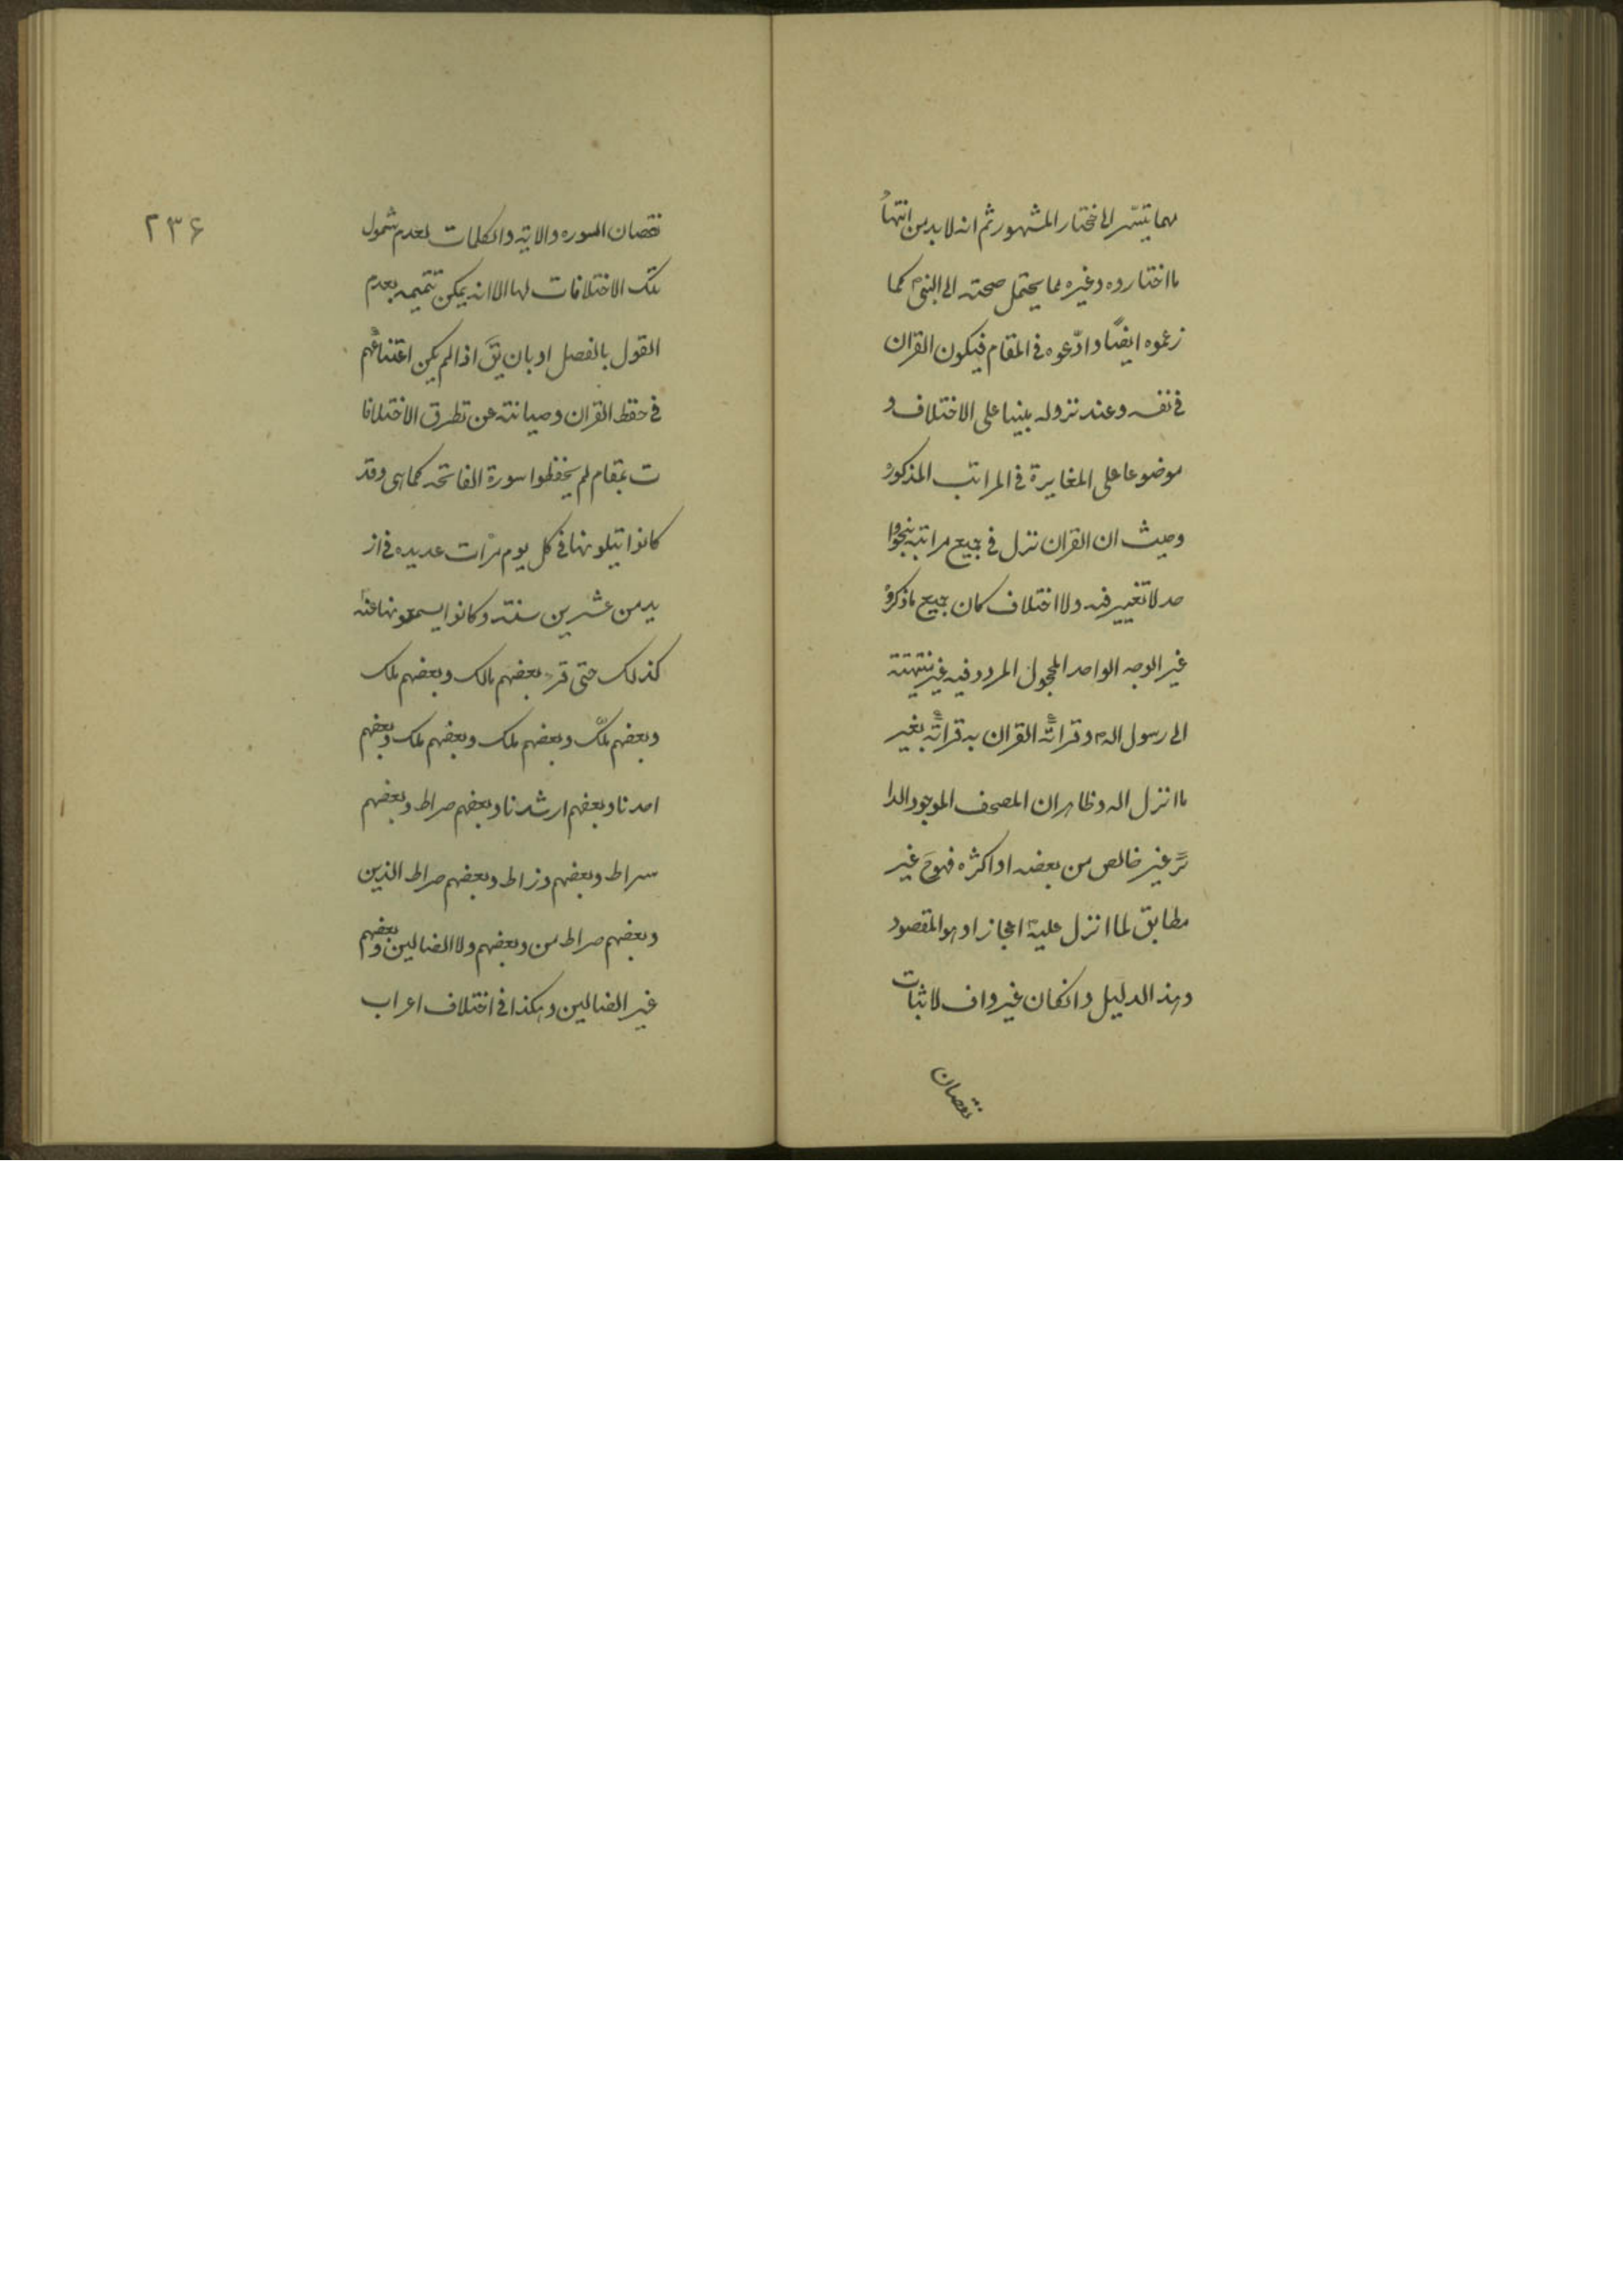 بهما يتسر الاختيار المشهور ثم انه لا بد من انتهاء
ما اختاروه وغيره مما يحتمل صحته الى النبى ص كما
زعموه ايضًا وادّعوه فى المقام فيكون القران
فى نفسه وعند نزوله مبنيا على الاختلاف و
موضوعا على المغايرة فى المراتب المذكوره
وحيث ان القران نزل فى جميع مراتبه بنحو وا
حد لا تغيير فيه ولا اختلاف كان جميع ما ذكروه
غير الوجه الواحد المجهول المردد فيه غير منتهية
الى رسول اله ص وقرائة القران به قرائة بغير
ما انزل اله وظاهر ان المصحف الموجود الدا
ئر غير خالص من بعضه او اكثره فهو ح غير
مطابق لما انزل عليه ص اعجازا وهو المقصود
وهذ الدليل وانكان غير واف لاثبات
نقصان
٢٣۶
نقصان السوره والاية والكلمات لعدم شمول
تلك الاختلافات لها الا انه يمكن تتميمه بعدم
القول بالفصل او بان يقَ اذا لم يكن اعتناءهم
فى حفظ القران وصيانته عن تطرق الاختلافا
ت بمقام لم يحفظوا سورة الفاتحه كما هى وقد
كانوا يتلونها فى كل يوم مرّات عديده فى از
يد من عشرين سنة وكانوا يسمعونها عنه
كذلك حتى قرء بعضهم مالك وبعضهم ملك
وبعضهم ملّك وبعضهم ملك وبعضهم ملك وبعضهم
اهدنا وبعضهم ارشدنا وبعضهم صراط وبعضهم
سراط وبعضهم زراط وبعضهم صراط الذين
وبعضهم صراط من وبعضهم ولا الضالين وبعضهم
غير الضالين وهكذا فى اختلاف اعراب